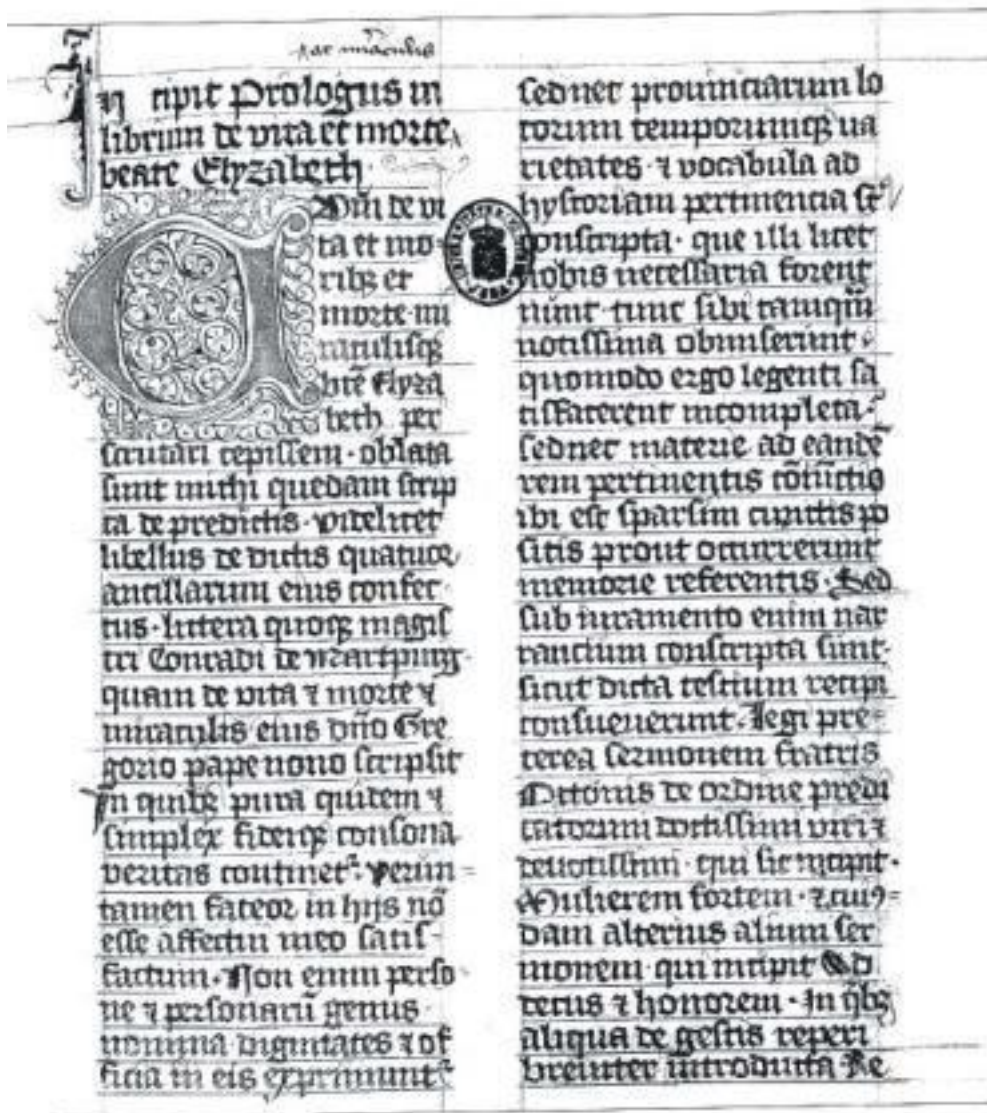 In cipit Prologus in
librum de vita et morte
beate Elyzabeth.
Cum de vi
ta et mo
ribꝫ et
morte mi
raculisqꝫ
btē Elyza
beth per
scrutari cepissem · oblata
sunt michi quedam scrip
ta de predictis · videlicet
libellus de dictis quatuor
ancillarum eius confec
tus · littera quoqꝫ magis
tri Conradi de Martpurg ·
quam de vita ⁊ morte ⁊
miraculis eius dn̄o Gre
gorio pape nono scripsit
In quibꝫ pura quidem ⁊
simplex fideiqꝫ consona
veritas continet᷑ · verum=
tamen fateor in hijs nō
esse affectui meo satis
factum · Non enim perso
ne ⁊ personarū genus
nomina dignitates ⁊ of
ficia in eis exprimunt᷑
sed nec prouinciarum lo
corum temporumqꝫ ua
rietates · ⁊ vocabula ad
hystoriam pertinencia st̄
conscripta · que illi licet
nobis necessaria forent
tunc sibi tamqūm
notissima obmiserunt ·
quomodo ergo legenti sa
tisfacerent incompleta ·
sed nec materie ad eandē
rem pertinentis cōiūctio
ibi est sparsim cunctis po
sitis prout occurrerunt
memorie referentis · Sed
sub iuramento enim nar
rancium conscripta sunt ·
sicut dicta testium recipi
consueuerunt · legi pre=
terea sermonem fratris
Ottonis de ordine predi
catorum doctissimi viri ⁊
deuotissimi · qui sic incipit ·
Mulierem fortem · ⁊ cuiꝰ=
dam alterius alium ser
monem qui incipit Ad
decus ⁊ honorem · In q̄bꝫ
aliqua de gestis reperi
breuiter introducta Re